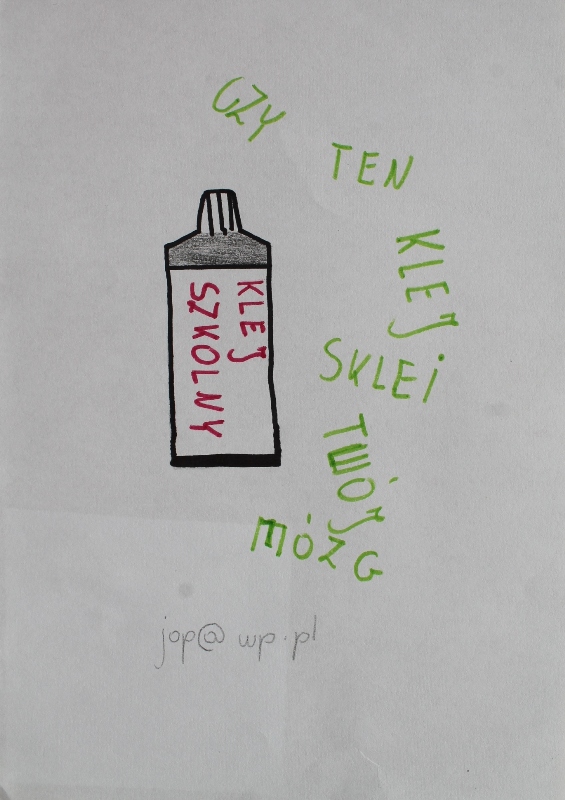 CZY
TEN
KLEJ
SKLEI
TWÓJ
MÓZG
KLEJ
SZKOLNY
jop@wp.pl